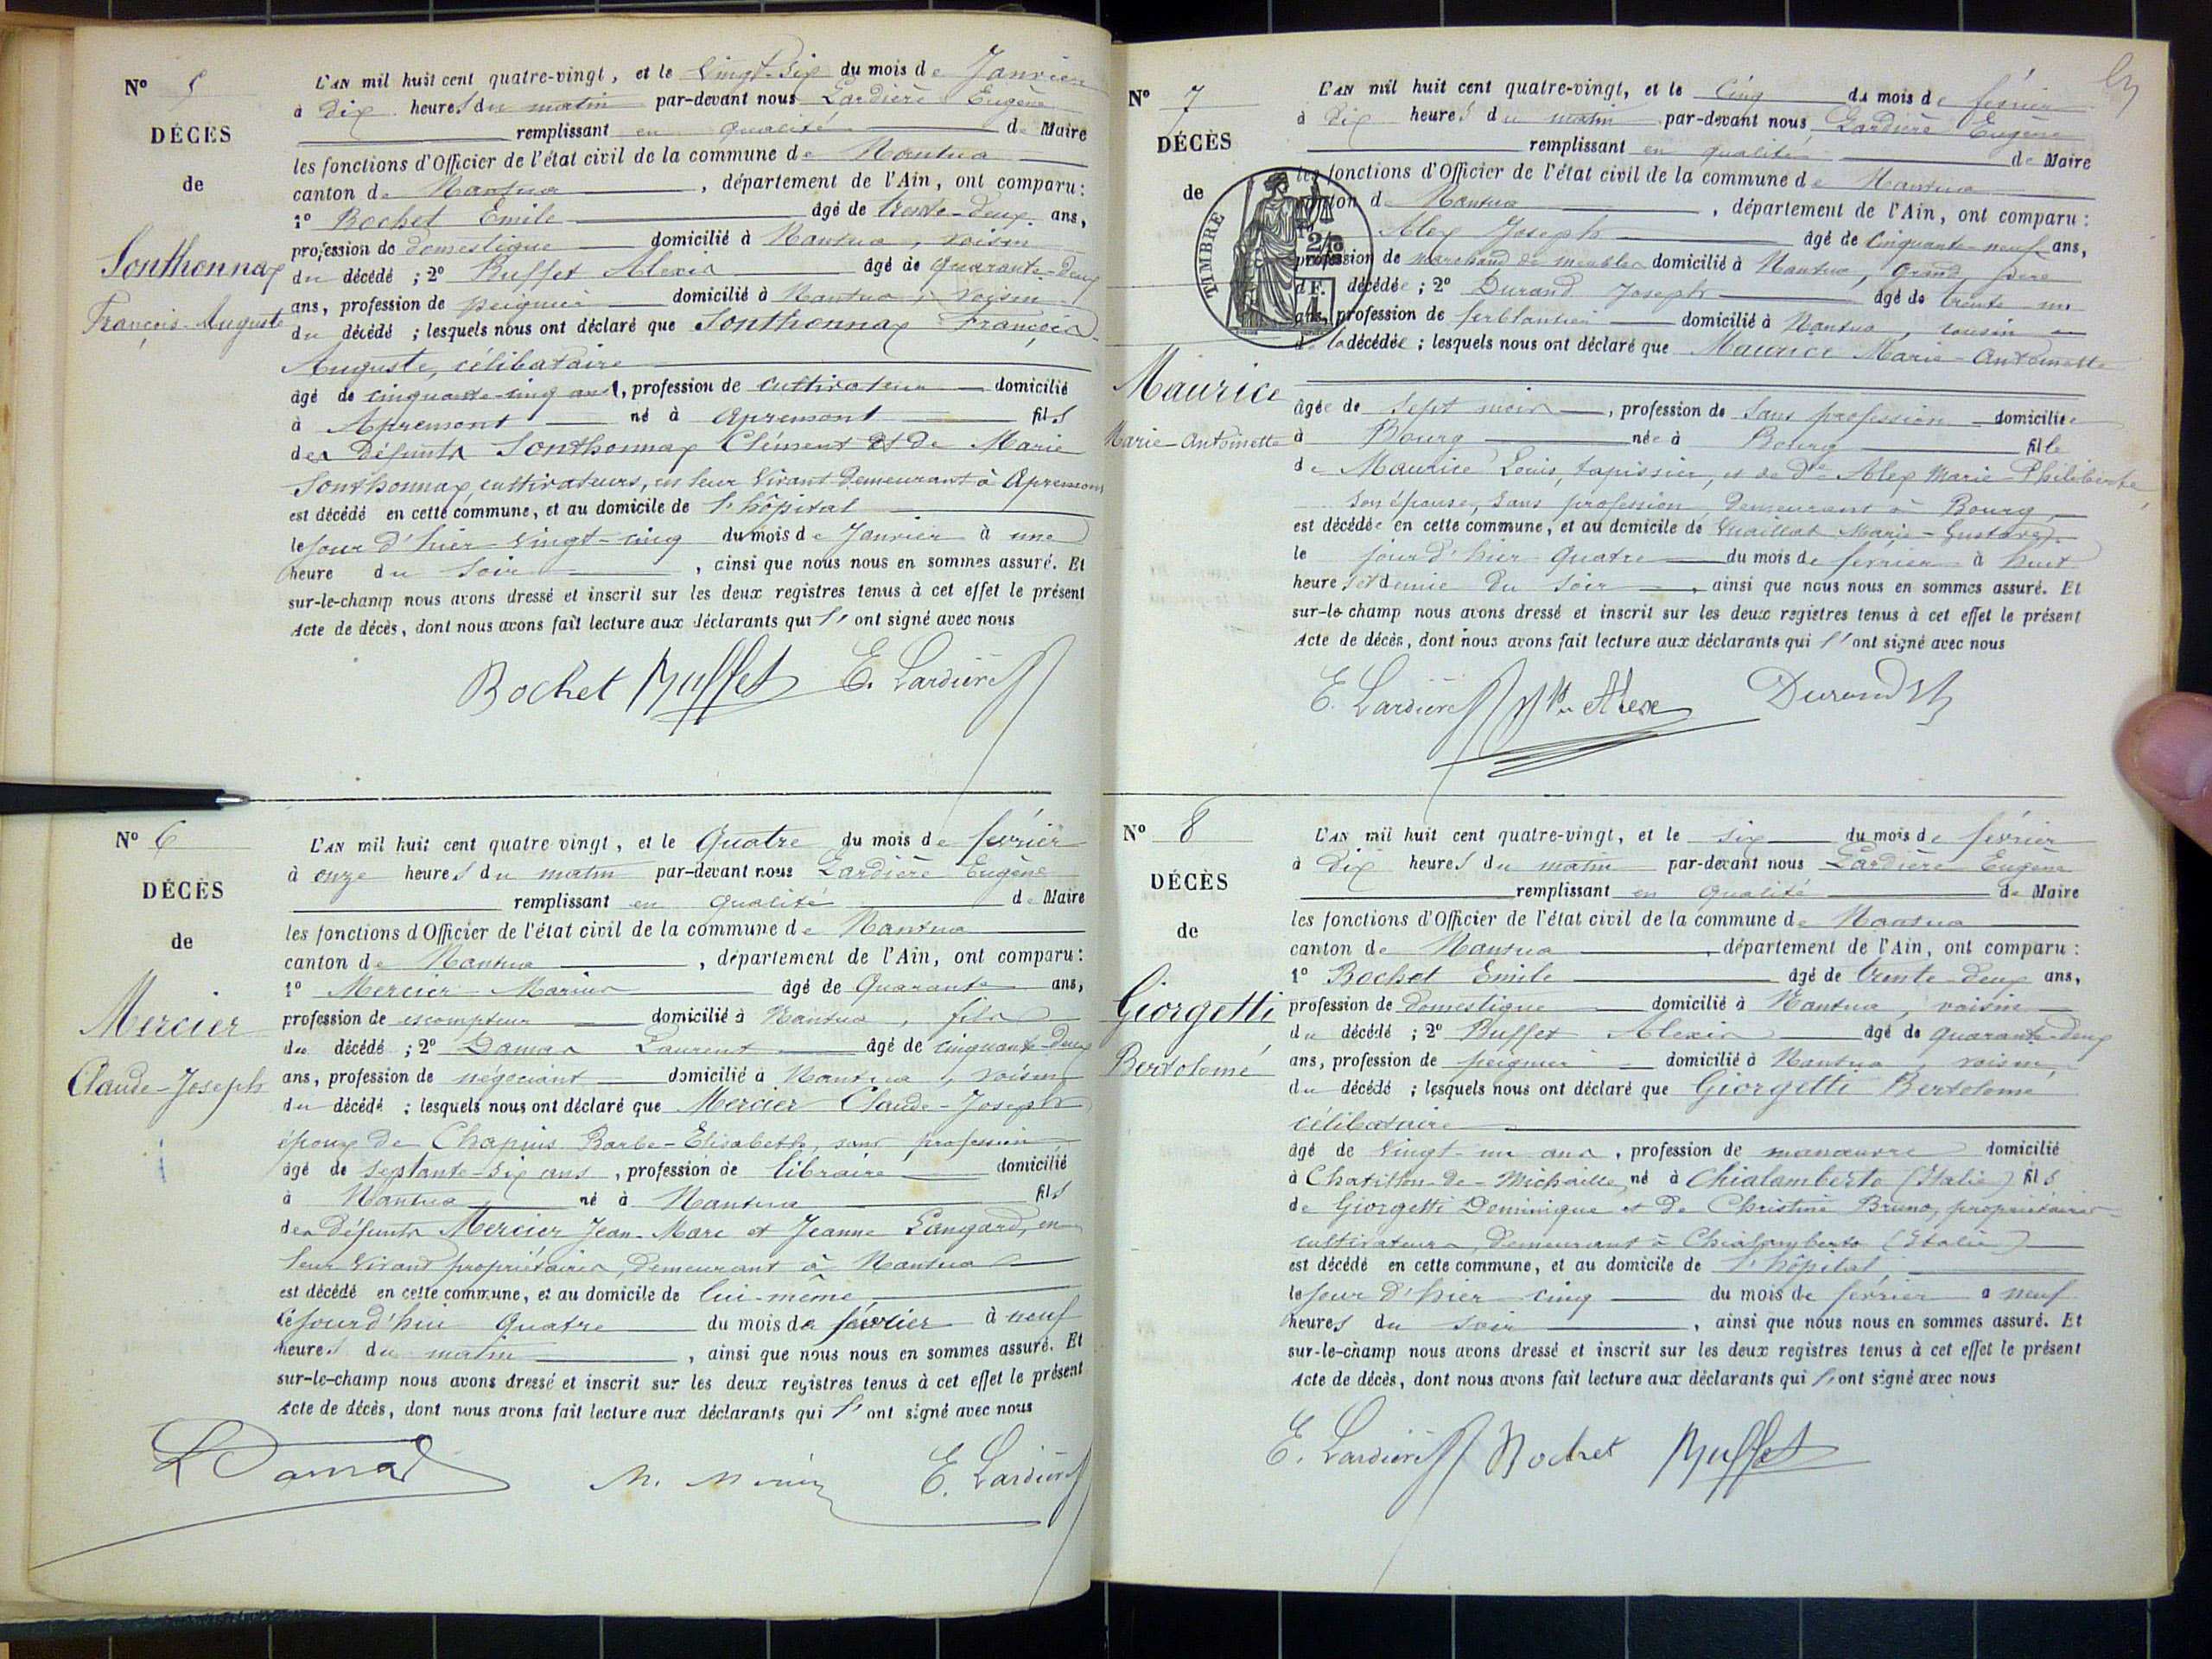 N° 5
DÉCÈS
de
Sonthonnax
François-Auguste
L'AN mil huit cent quatre-vingt, et le vingt-six du mois de Janvier
à dix heures du matin par-devant nous Lardière Eugène
remplissant en qualité de Maire
les fonctions d'Officier de l'état civil de la commune de Nantua
canton de Nantua, département de l'Ain, ont comparu:
1° Bochet Emile âgé de trente-deux ans,
profession de domestique domicilié à Nantua, voisin
du décédé; 2° Buffet Alexis âgé de quarante-deux
ans, profession de peignier domicilié à Nantua, voisin
du décédé; lesquels nous ont déclaré que Sonthonnax François-
Auguste, célibataire
âgé de cinquante-cinq ans, profession de cultivateur domicilié
à Apremont né à Apremont fils
des défunts Sonthonnax Clément et de Marie
Sonthonnax, cultivateurs, en leur vivant demeurant à Apremont
est décédé en cette commune, et au domicile de l'hôpital
le jour d'hier vingt-cinq du mois de Janvier à une
heure du soir, ainsi que nous nous en sommes assuré. Et
sur-le-champ nous avons dressé et inscrit sur les deux registres tenus à cet effet le présent
Acte de décès, dont nous avons fait lecture aux déclarants qui l'ont signé avec nous
Bochet Buffet E. Lardière
N° 6
DÉCÈS
de
Mercier
Claude-Joseph
L'AN mil huit cent quatre vingt, et le Quatre du mois de février
à onze heures du matin par-devant nous Lardière Eugène
remplissant en qualité de Maire
les fonctions d'Officier de l'état civil de la commune de Nantua
canton de Nantua, département de l'Ain, ont comparu:
1° Mercier Marius âgé de Quarante ans,
profession de escompteur domicilié à Nantua, fils
du décédé; 2° Damas Laurent âgé de cinquante-deux
ans, profession de négociant domicilié à Nantua, voisin
du décédé; lesquels nous ont déclaré que Mercier Claude-Joseph
époux de Chapuis Barbe-Elisabeth, sans profession
âgé de septante-six ans, profession de libraire domicilié
à Nantua né à Nantua fils
des défunts Mercier Jean-Marc et Jeanne Langard, en
leur vivant propriétaires, demeurant à Nantua
est décédé en cette commune, et au domicile de lui-même,
le jourd'hui Quatre du mois de février à neuf
heures du matin, ainsi que nous nous en sommes assuré. Et
sur-le-champ nous avons dressé et inscrit sur les deux registres tenus à cet effet le présent
Acte de décès, dont nous avons fait lecture aux déclarants qui l'ont signé avec nous
L Damas M. Mercier E. Lardière
N° 7
DÉCÈS
de
Maurice
Marie-Antoinette
TIMBRE
L'AN mil huit cent quatre-vingt, et le Cinq du mois de février
à dix heures du matin par-devant nous Lardière Eugène
remplissant en qualité de Maire
les fonctions d'Officier de l'état civil de la commune de Nantua
canton de Nantua, département de l'Ain, ont comparu:
Alex Joseph âgé de Cinquante-neuf ans,
profession de marchand de meubles domicilié à Nantua, Grand père
décédée; 2° Durand Joseph âgé de trente un
ans, profession de ferblantier domicilié à Nantua, cousin
de la décédée; lesquels nous ont déclaré que Maurice Marie-Antoinette
âgée de sept mois, profession de sans profession domiciliée
à Bourg née à Bourg fille
de Maurice Louis, tapissier, et de De Alex Marie-Philiberte,
son épouse, sans profession, demeurant à Bourg,
est décédée en cette commune, et au domicile de Vuaillat Marie-Gustave,
le jour d'hier quatre du mois de février à huit
heures et demie du soir, ainsi que nous nous en sommes assuré. Et
sur-le champ nous avons dressé et inscrit sur les deux registres tenus à cet effet le présent
Acte de décès, dont nous avons fait lecture aux déclarants qui l'ont signé avec nous
E. Lardière Alexe Durand
N° 8
DÉCÈS
de
Giorgetti
Bertolomé
L'AN mil huit cent quatre-vingt, et le six du mois de février
à dix heures du matin par-devant nous Lardière Eugène
remplissant en qualité de Maire
les fonctions d'Officier de l'état civil de la commune de Nantua
canton de Nantua, département de l'Ain, ont comparu:
1° Bochet Emile âgé de trente-deux ans,
profession de domestique domicilié à Nantua, voisin
du décédé; 2° Buffet Alexis âgé de quarante-deux
ans, profession de peignier domicilié à Nantua, voisin,
du décédé; lesquels nous ont déclaré que Giorgetti Bertolomé
célibataire
âgé de vingt-un ans, profession de manœuvre domicilié
à Chatillon-de-Michaille, né à Chialamberto (Italie) fils
de Giorgetti Dominique et de Christine Bruno, propriétaires-
cultivateurs, demeurant à Chialamberto (Italie)
est décédé en cette commune, et au domicile de l'hôpital,
le jour d'hier cinq du mois de février à neuf
heures du soir, ainsi que nous nous en sommes assuré. Et
sur-le-champ nous avons dressé et inscrit sur les deux registres tenus à cet effet le présent
Acte de décès, dont nous avons fait lecture aux déclarants qui l'ont signé avec nous
E. Lardière Bochet Buffet